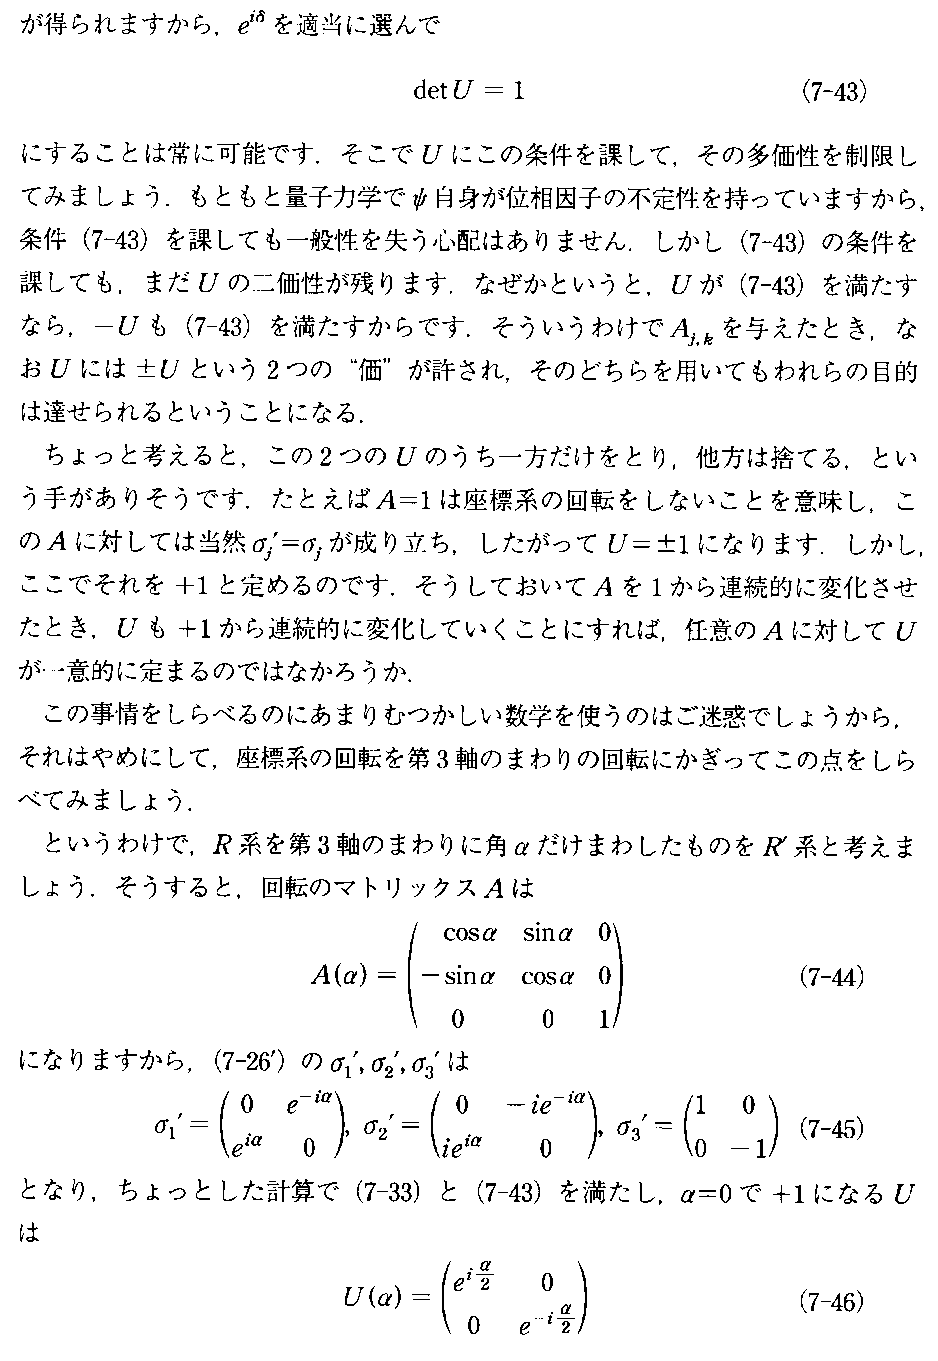 が得られますから，e^{iδ} を適当に選んで
det U = 1 (7-43)
にすることは常に可能です．そこで U にこの条件を課して，その多価性を制限し
てみましょう．もともと量子力学で ψ 自身が位相因子の不定性を持っていますから，
条件 (7-43) を課しても一般性を失う心配はありません．しかし (7-43) の条件を
課しても，まだ U の二価性が残ります．なぜかというと，U が (7-43) を満たす
なら，−U も (7-43) を満たすからです．そういうわけで A_{j,k} を与えたとき，な
お U には ±U という 2 つの “価” が許され，そのどちらを用いてもわれらの目的
は達せられるということになる．
ちょっと考えると，この 2 つの U のうち一方だけをとり，他方は捨てる，とい
う手がありそうです．たとえば A=1 は座標系の回転をしないことを意味し，こ
の A に対しては当然 σ_j′=σ_j が成り立ち，したがって U=±1 になります．しかし，
ここでそれを +1 と定めるのです．そうしておいて A を 1 から連続的に変化させ
たとき，U も +1 から連続的に変化していくことにすれば，任意の A に対して U
が一意的に定まるのではなかろうか．
この事情をしらべるのにあまりむつかしい数学を使うのはご迷惑でしょうから，
それはやめにして，座標系の回転を第 3 軸のまわりの回転にかぎってこの点をしら
べてみましょう．
というわけで，R 系を第 3 軸のまわりに角 α だけまわしたものを R′ 系と考えま
しょう．そうすると，回転のマトリックス A は
cosα sinα 0
A(α) = −sinα cosα 0 (7-44)
0 0 1
になりますから，(7-26′) の σ₁′, σ₂′, σ₃′ は
σ₁′ = (0 e^{−iα}; e^{iα} 0), σ₂′ = (0 −ie^{−iα}; ie^{iα} 0), σ₃′ = (1 0; 0 −1) (7-45)
となり，ちょっとした計算で (7-33) と (7-43) を満たし，α=0 で +1 になる U
は
U(α) = (e^{iα/2} 0; 0 e^{−iα/2}) (7-46)